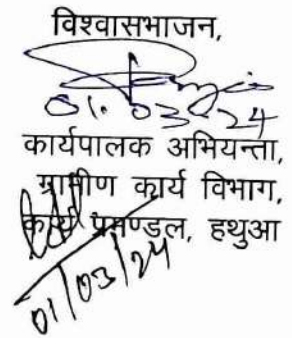 विश्वासभाजन,
01.03-24
कार्यपालक अभियन्ता,
ग्रामीण कार्य विभाग,
कार्य प्रमण्डल, हथुआ
01/03/24